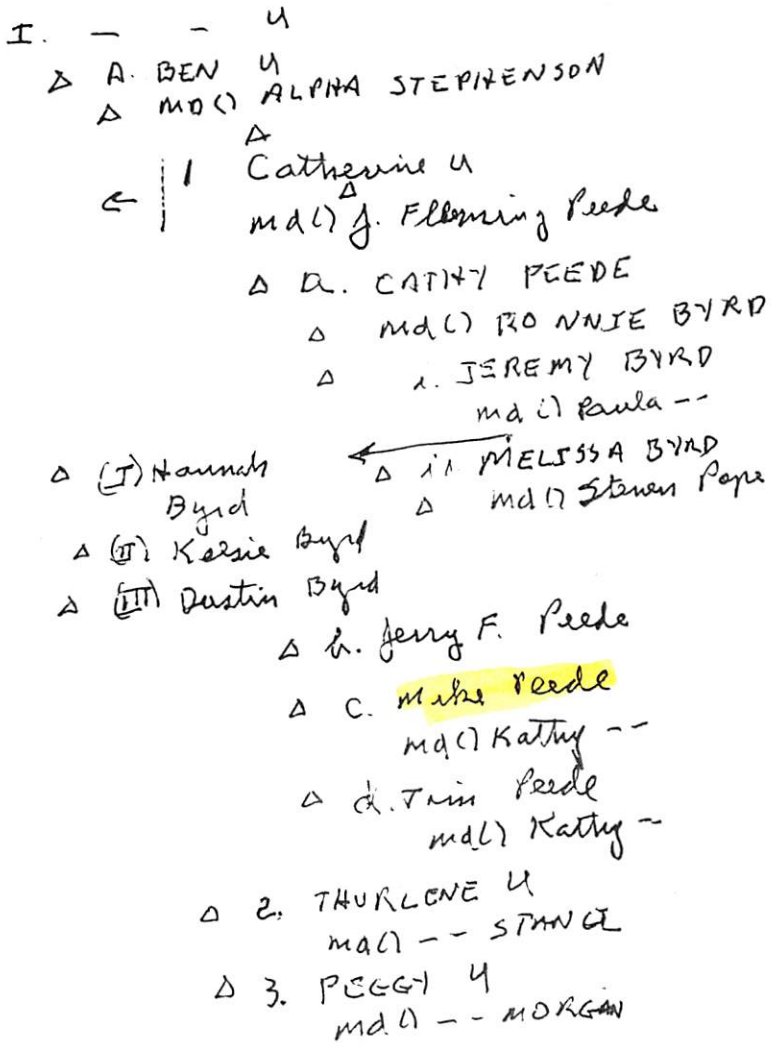 I. - - U
Δ A. BEN U
Δ MD() ALPHA STEPHENSON
Δ
← 1 Catherine U
Δ
md() J. Flleming Peede
Δ a. CATHY PEEDE
Δ md() RONNIE BYRD
Δ i. JEREMY BYRD
md() Paula --
Δ ii MELISSA BYRD
Δ md() Steven Pope
Δ (I) Hannah
Byrd
Δ (II) Kelsie Byrd
Δ (III) Dustin Byrd
Δ b. Jerry F. Peede
Δ c. Mike Peede
md() Kathy --
Δ d. Tim Peede
md() Kathy -
Δ 2. THURLENE U
md() -- 
Δ 3. PEGGY U
md() -- MORGAN